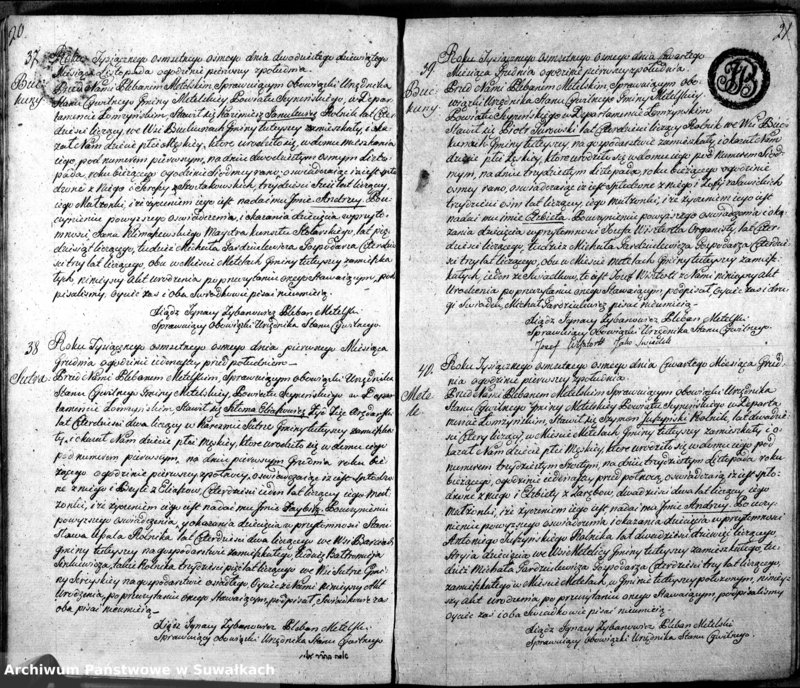 20.
37.
Buć
kuny.
Roku Tysiącznego osmsetnego osmego dnia dwudziestego dziewiątego
Miesiąca Listopada o godzinie pierwszy zpołudnia.
Przed Nami Plebanem Metelskim, Sprawuiącym obowiązki Urzędnika
Stanu Cywilnego Gminy Metelskiey Powiatu Seyneńskiego, w Depar-
tamencie Łomżyńskim, Stawił się Kazimierz Rolnik lat Czter-
dzieści liczący, we Wsi Gminy tuteyszy zamieszkały, i oka-
zał Nam dziecie płci Męzkiey, które urodziło się w domu mieszkania
iego pod numerem pierwszym, na dniu dwudziestym osmym Listo-
pada, roku bieżącego o godzinie siódmy rano, oświadczaiąc iż iest spło-
dzone z niego i trzydzieści Sześć lat liczący,
iego Małżonki, i iż życzeniem iego iest nadać mu Imie Andrzey. Po u-
czynieniu powyższego oświadczenia, i okazania dziecięcia w przyto-
mności, Jana Maystra kunsztu Stolarskiego, lat pię-
dziesiąt liczącego, tudzież Michała Gospodarza Czterdzie-
ści trzy lat liczącego, obu w Mieście Metelach Gminy tuteyszy zamieszka-
łych, ninieyszy Akt urodzenia po przeczytaniu onego Stawaiącym, pod-
pisaliśmy, Oyciec zaś i oba Świadkowie pisać nieumieią.—
Xiądz Ignacy Żybanowicz Pleban Metelski.
Sprawuiący obowiązki Urzędnika Stanu Cywilnego.
38
Sutra.
Roku Tysiącznego osmsetnego osmego dnia pierwszego Miesiąca
Grudnia o godzinie iedenasty przed południem.
Przed Nami Plebanem Metelskim, Sprawuiącym obowiązki Urzędnika
Stanu Cywilnego Gminy Metelskiey, Powiatu Seyneńskiego w Depar-
tamencie Łomżyńskim, Stawił się
lat Czterdzieści dwa liczący w Karczmie Sutrze Gminy tuteyszy zamieszka-
ły, i okazał Nam dziecie płci Męzkiey, które urodziło się w domu iego
pod numerem pierwszym, na dniu pierwszym Grudnia roku bie-
żącego o godzinie pierwszy zpółnocy, oświadczaiąc iż iest spłodzo-
ne z niego i Czterdzieści ieden lat liczący iego Mał-
żonki, i iż życzeniem iego iest nadać mu Imie Po uczynieniu
powyższego oświadczenia, y okazania dziecięcia w przytomności Stani-
sława Rolnika lat Czterdzieści dwa liczącego we Wsi
Gminy tuteyszy na gospodarstwie zamieszkałego, tudzież Bartłomieja
także Rolnika trzydzieści pięć lat liczącego we Wsi Sutrze Gmi-
ny na gospodarstwie osiadłego, Oyciec z Nami ninieyszy Akt
Urodzenia, po przeczytaniu onego Stawaiącym, podpisał, Świadkowie za-
oba pisać nieumieią.—
Xiądz Ignacy Żybanowicz Pleban Metelski.
Sprawuiący obowiązki Urzędnika Stanu Cywilnego
21.
39.
Buć
kuny.
Roku Tysiącznego osmsetnego osmego dnia czwartego
Miesiąca Grudnia o godzinie pierwszy zpołudnia.
Przed Nami Plebanem Metelskim, Sprawuiącym obo-
wiązki Urzędnika Stanu Cywilnego Gminy Metelskiey.
Powiatu Seyneńskiego w Departamencie Łomżyńskim
Stawił się Piotr lat Czterdzieści liczący Rolnik we Wsi Buć-
kunach Gminy tuteyszy, na gospodarstwie zamieszkały i okazał Nam
dziecie płci Żeńskiey, które urodziło się w domu iego pod Numerem
na dniu trzydziestym Listopada, roku bieżącego o godzinie
osmy rano, oświadczaiąc iż iest spłodzone z niego i Zofii
trzydzieści osm lat liczący, iego małżonki, i iż życzeniem iego iest
nadać mu imie Elżbieta. Po uczynieniu powyższego oświadczenia i oka-
zania dziecięcia w przytomności Józefa Organisty, lat Czter-
dzieści liczącego, tudzież Michała Gospodarza Czterdzie-
ści trzy lat liczącego, obu w Mieście Metelach Gminy tuteyszy zamiesz-
kałych, ieden ze Świadków, to iest Józef z Nami ninieyszy Akt
urodzenia po przeczytaniu onego Stawaiącym, podpisał, Oyciec zaś i dru-
gi Świadek, Michał pisać nieumieią.—
Xiądz Ignacy Żybanowicz Pleban Metelski.
Sprawuiący Obowiązki Urzędnika Stanu Cywilnego.
Jozef Jako Swiadek
40.
Mete
le
Roku Tysiącznego osmsetnego osmego dnia Czwartego Miesiąca Grud-
nia o godzinie pierwszy zpołudnia.
Przed Nami Plebanem Metelskim, Sprawuiącym obowiązki Urzędnika
Stanu Cywilnego Gminy Metelskiey Powiatu Seyneńskiego w Departa-
mencie Łomżyńskim, Stawił się Szymon Rolnik, lat dwadzie-
ści Cztery liczący w Mieście Metelach Gminy tuteyszy zamieszkały i o-
kazał Nam dziecie płci Męzkiey, które urodziło się w domu iego pod
numerem trzydziestym Szostym, na dniu trzydziestym Listopada roku
bieżącego, o godzinie iedenasty przed północą, oświadczaiąc iż iest spło-
dzone z niego i Elżbiety z dwadzieścia dwa lat liczący iego
małżonki, i iż życzeniem iego iest nadać mu Imie Andrzey. Po uczy-
nieniu powyższego oświadczenia i okazania dziecięcia w przytomności
Antoniego Rolnika lat dwadzieścia dziewięć liczącego,
Stryia dziecięcia we Wsi Gminy tuteyszy zamieszkałego tu-
dzież Michała Gospodarza Czterdzieści trzy lat liczącego,
zamieszkałego w Mieście Metelach, w Gminie tuteyszy położonym, niniey-
szy Akt urodzenia, po przeczytaniu onego Stawaiącym, podpisaliśmy
Oyciec zaś i oba Świadkowie pisać nieumieią.—
Xiądz Ignacy Żybanowicz Pleban Metelski
Sprawuiący obowiązki Urzędnika Stanu Cywilnego.
Archiwum Państwowe w Suwałkach